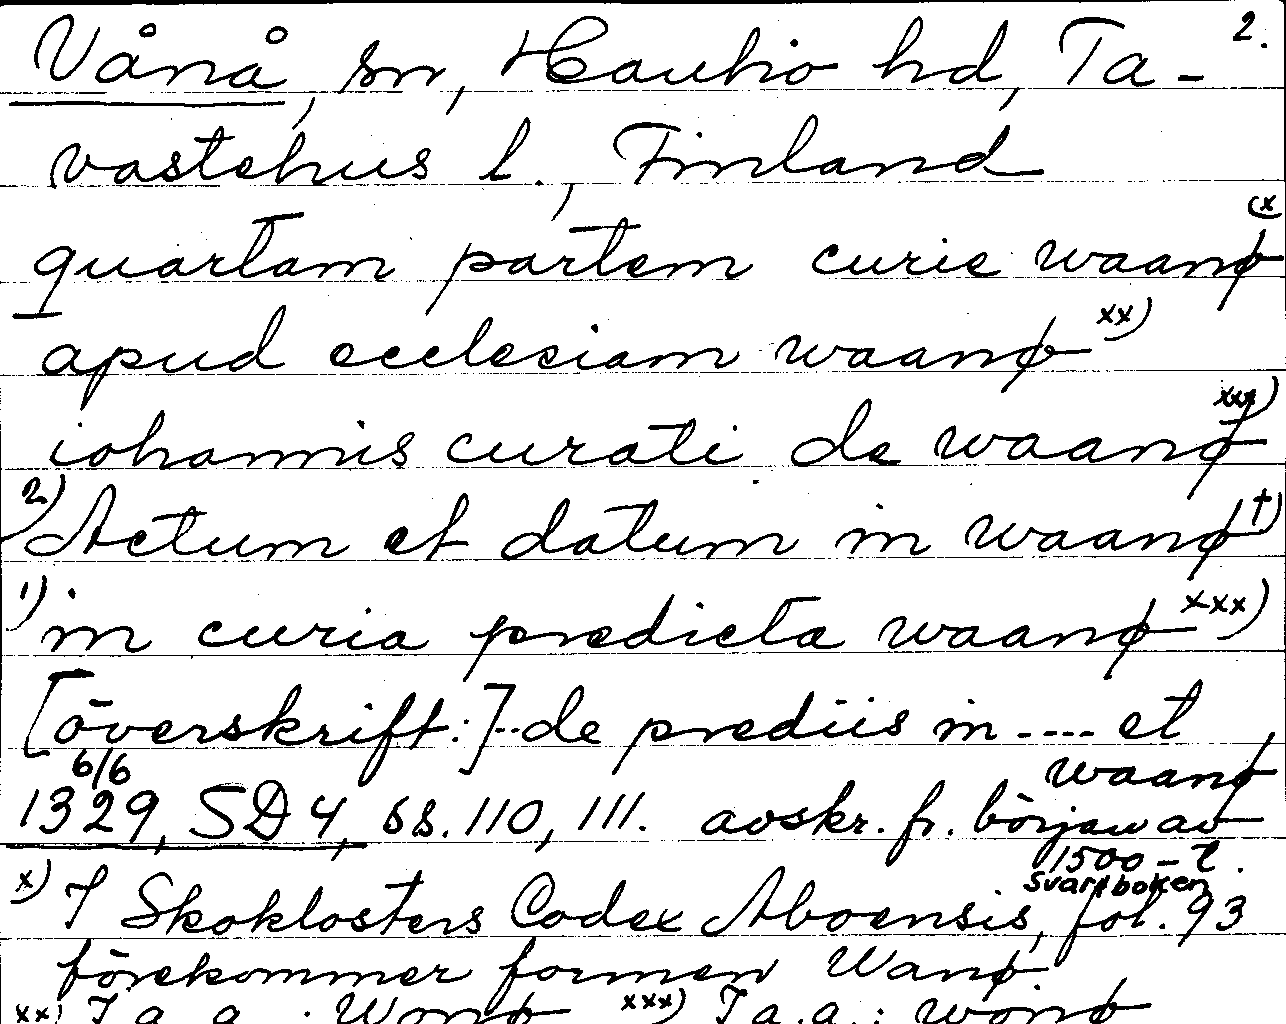 2.
Vånå, sn, Hauho hd, Ta-
vastehus l., Finland
quartam partem curie waanø x)
apud ecclesiam waanø xx)
iohannis curati de waanø xxx)
2) Actum et datum in waanø †)
1) in curia predicta waanø xxx)
[överskrift:]..de prediis in .... et
waanø
6/6
1329, SD 4, ss. 110, 111. avskr. fr. början av
1500-t.
svartboken
x) I Skoklosters Codex Aboensis, fol. 93
förekommer formen Wanø.
xx) I a. a.: Wonø xxx) I a.a.: wonø